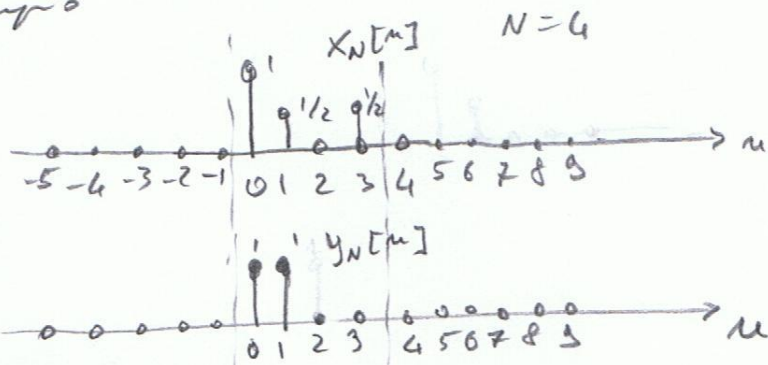 x_N[n] N = 4
1 1/2 1/2
-5 -4 -3 -2 -1 0 1 2 3 4 5 6 7 8 9 n
1 1 y_N[n]
0 1 2 3 4 5 6 7 8 9 n